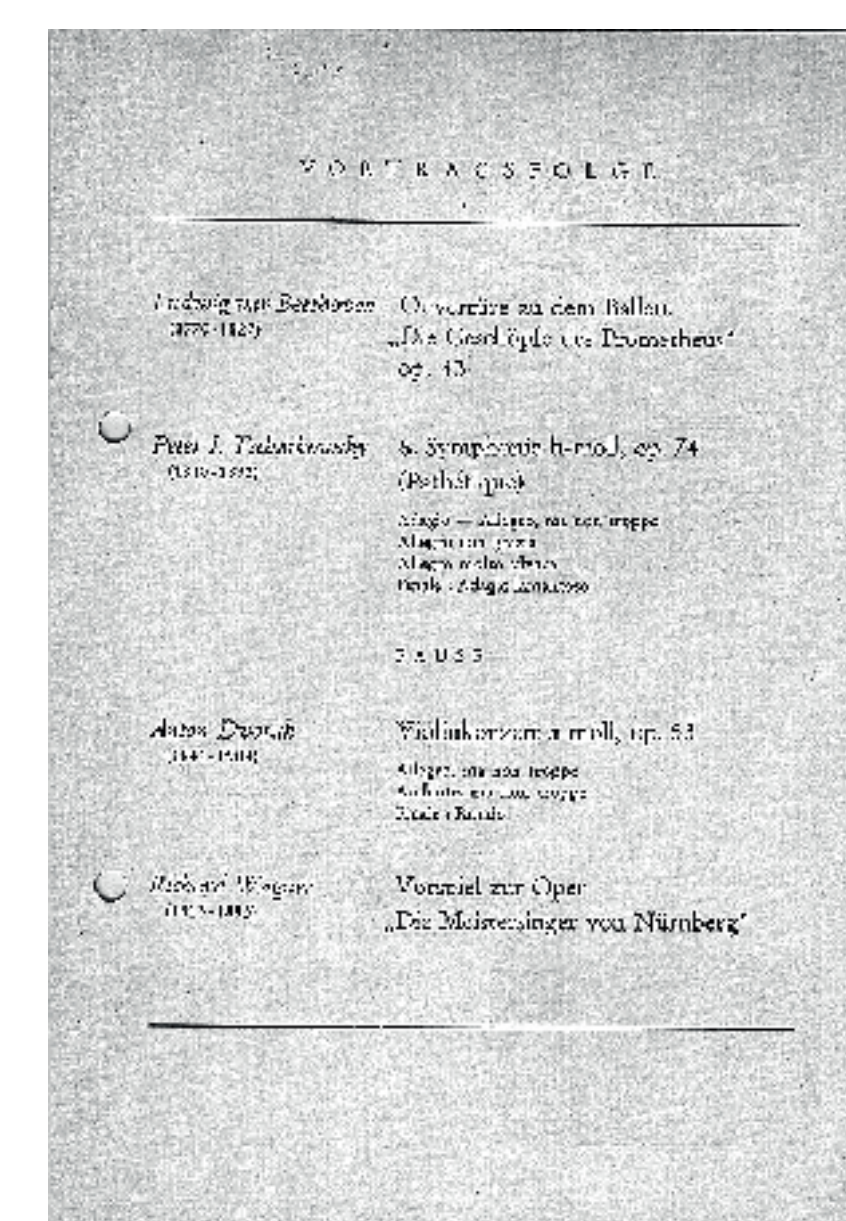 VORTRAGSFOLGE
Ludwig van Beethoven
(1770-1827)
Ouvertüre zu dem Ballett
„Die Geschöpfe des Prometheus“
op. 43
Peter J. Tschaikowsky
(1840-1893)
6. Symphonie h-moll, op. 74
(Pathétique)
Adagio — Allegro, ma non troppo
Allegro con grazia
Allegro molto vivace
Finale: Adagio lamentoso
PAUSE
Anton Dvorak
(1841-1904)
Violinkonzert a-moll, op. 53
Allegro, ma non troppo
Andante, ma non troppo
Finale: Rondo
Richard Wagner
(1813-1883)
Vorspiel zur Oper
„Die Meistersinger von Nürnberg“